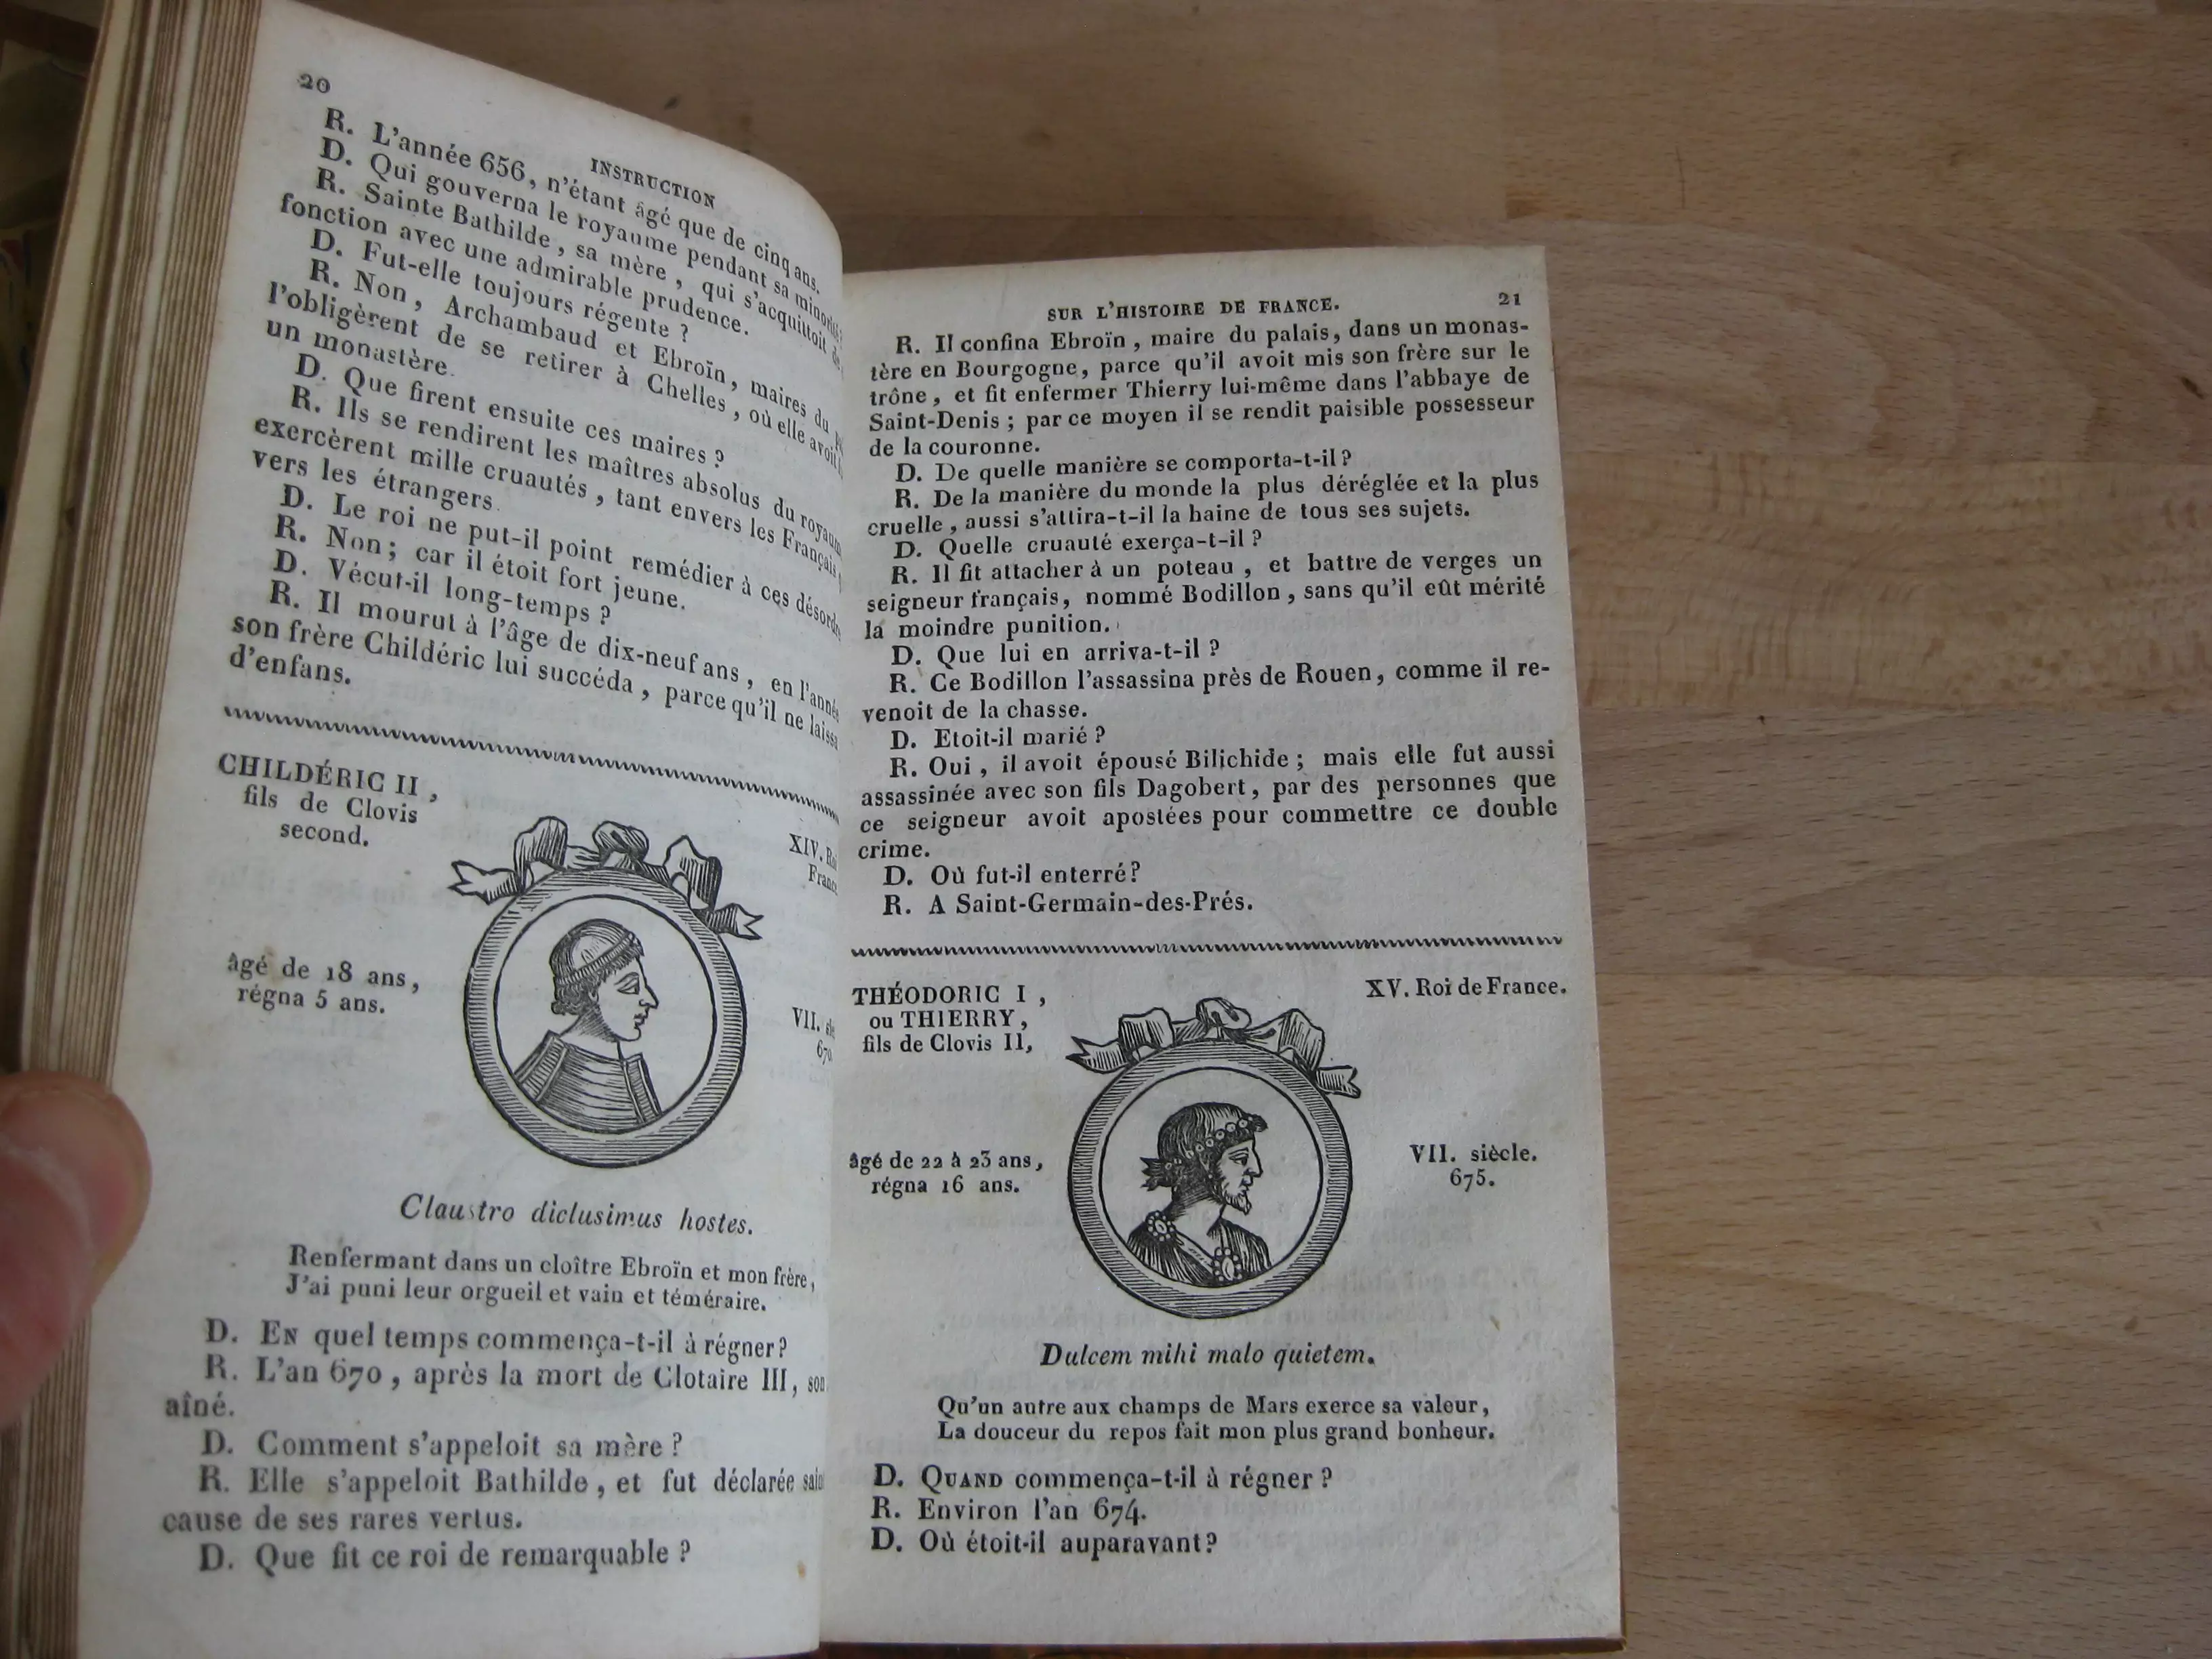 20
INSTRUCTION
R. L'année 656, n'étant âgé que de cinq ans.
D. Qui gouverna le royaume pendant sa minorité?
R. Sainte Bathilde, sa mère, qui s'acquittoit de
fonction avec une admirable prudence.
D. Fut-elle toujours régente ?
R. Non, Archambaud et Ebroïn, maires du
l'obligèrent de se retirer à Chelles, où elle avoit
un monastère.
D. Que firent ensuite ces maires ?
R. Ils se rendirent les maîtres absolus du royaum
exercèrent mille cruautés, tant envers les Français,
vers les étrangers.
D. Le roi ne put-il point remédier à ces désordr
R. Non; car il étoit fort jeune.
D. Vécut-il long-temps ?
R. Il mourut à l'âge de dix-neuf ans, en l'anné
son frère Childéric lui succéda, parce qu'il ne laissa
d'enfans.
CHILDÉRIC II,
fils de Clovis
second.
XIV. Roi
Franc
âgé de 18 ans,
régna 5 ans.
VII. siè
670
Claustro diclusimus hostes.
Renfermant dans un cloître Ebroïn et mon frère,
J'ai puni leur orgueil et vain et téméraire.
D. EN quel temps commença-t-il à régner?
R. L'an 670, après la mort de Clotaire III, son
aîné.
D. Comment s'appeloit sa mère ?
R. Elle s'appeloit Bathilde, et fut déclarée sain
cause de ses rares vertus.
D. Que fit ce roi de remarquable ?
SUR L'HISTOIRE DE FRANCE. 21
R. Il confina Ebroïn, maire du palais, dans un monas-
tère en Bourgogne, parce qu'il avoit mis son frère sur le
trône, et fit enfermer Thierry lui-même dans l'abbaye de
Saint-Denis; par ce moyen il se rendit paisible possesseur
de la couronne.
D. De quelle manière se comporta-t-il?
R. De la manière du monde la plus déréglée et la plus
cruelle, aussi s'attira-t-il la haine de tous ses sujets.
D. Quelle cruauté exerça-t-il ?
R. Il fit attacher à un poteau, et battre de verges un
seigneur français, nommé Bodillon, sans qu'il eût mérité
la moindre punition.
D. Que lui en arriva-t-il ?
R. Ce Bodillon l'assassina près de Rouen, comme il re-
venoit de la chasse.
D. Etoit-il marié ?
R. Oui, il avoit épousé Bilichide; mais elle fut aussi
assassinée avec son fils Dagobert, par des personnes que
ce seigneur avoit apostées pour commettre ce double
crime.
D. Où fut-il enterré?
R. A Saint-Germain-des-Prés.
THÉODORIC I,
ou THIERRY,
fils de Clovis II,
XV. Roi de France.
âgé de 22 à 23 ans,
régna 16 ans.
VII. siècle.
675.
Dulcem mihi malo quietem.
Qu'un autre aux champs de Mars exerce sa valeur,
La douceur du repos fait mon plus grand bonheur.
D. QUAND commença-t-il à régner ?
R. Environ l'an 674.
D. Où étoit-il auparavant?